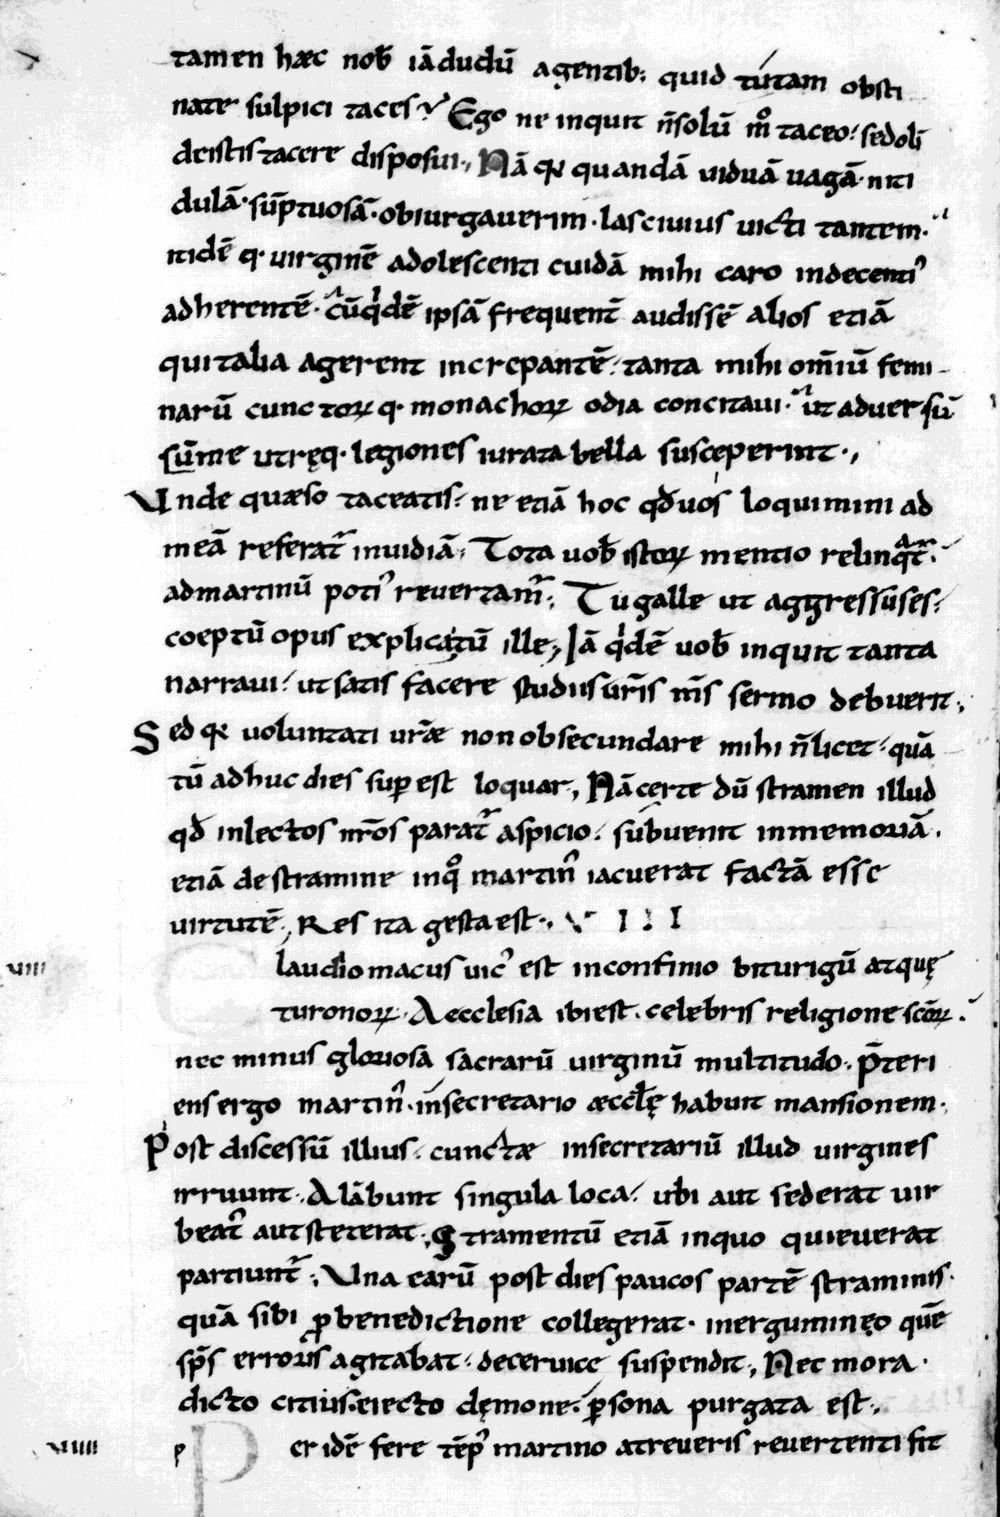 tamen hæc nob̄ iā dudū agentib; quid tu tam obsti
nate sulpici taces? Ego ne inquit n̄ solū m̊ taceo. sed oli
de istis tacere disposui. Nā qr quandā viduā vagā. niti
dulā. sūptuosā. obiurgaverim. lascivius victi tantem.
itidē q. virginē adolescenti cuidā mihi caro indecenti᾿
adherentē. cū qͥdē ipsā frequent̄ audissē alios etiā
qui talia agerent increpantē. tanta mihi om̄iū femi-
narū cunctoꝝ q. monachoꝝ odia concitavi. ut adversū
sūme utręq. legiones iurata bella susceperint.
Unde quæso taceatis. ne etiā hoc qđ vos loquimini ad
meā referat᷑ invidiā. Tota vob̄ istoꝝ mentio relinqͣt᷑.
ad martinū poti᾿ revertam᷑. Tu galle ut aggressus es.
coeptū opus explica tū ille; Iā qͥdē vob̄ inquit tanta
narravi. ut satis facere studiis ūris m̄s sermo debuerit.
Sed qr voluntati ūræ non obsecundare mihi n̄ licet. quā
tū adhuc dies suꝑest loquar. Nā certe dū stramen illud
qđ in lectos n̄ros parat᷑ aspicio. subvenit in memoriā.
etiā de stramine in qͦ martin᾿ iacuerat factā esse
virtutē. Res ita gesta est. VIII
viiii laudiomacus vic᾿ est in confinio biturigū atquę
turonoꝝ. Aecclesia ibi est. celebris religione sc̄oꝝ.
nec minus gloriosa sacrarū virginū multitudo. P̄teri
ens ergo martin᾿. in secretario æccłę habuit mansionem.
Post discessū illius. cunctæ in secretariū illud virgines
irruunt. Alābunt singula loca. ubi aut sederat vir
beat᾿ aut steterat. Stramentū etiā in quo quieverat
partiunt᷑. Una earū post dies paucos partē straminis.
quā sibi ꝓ benedictione collegerat. inergumineo quē
sp̄s erroris agitabat. de cervice suspendit. Nec mora.
dicto citius. eiecto dęmone. ꝑsona purgata est.
viiiii p P er idē fere tēp᾿ martino a treveris revertenti fit